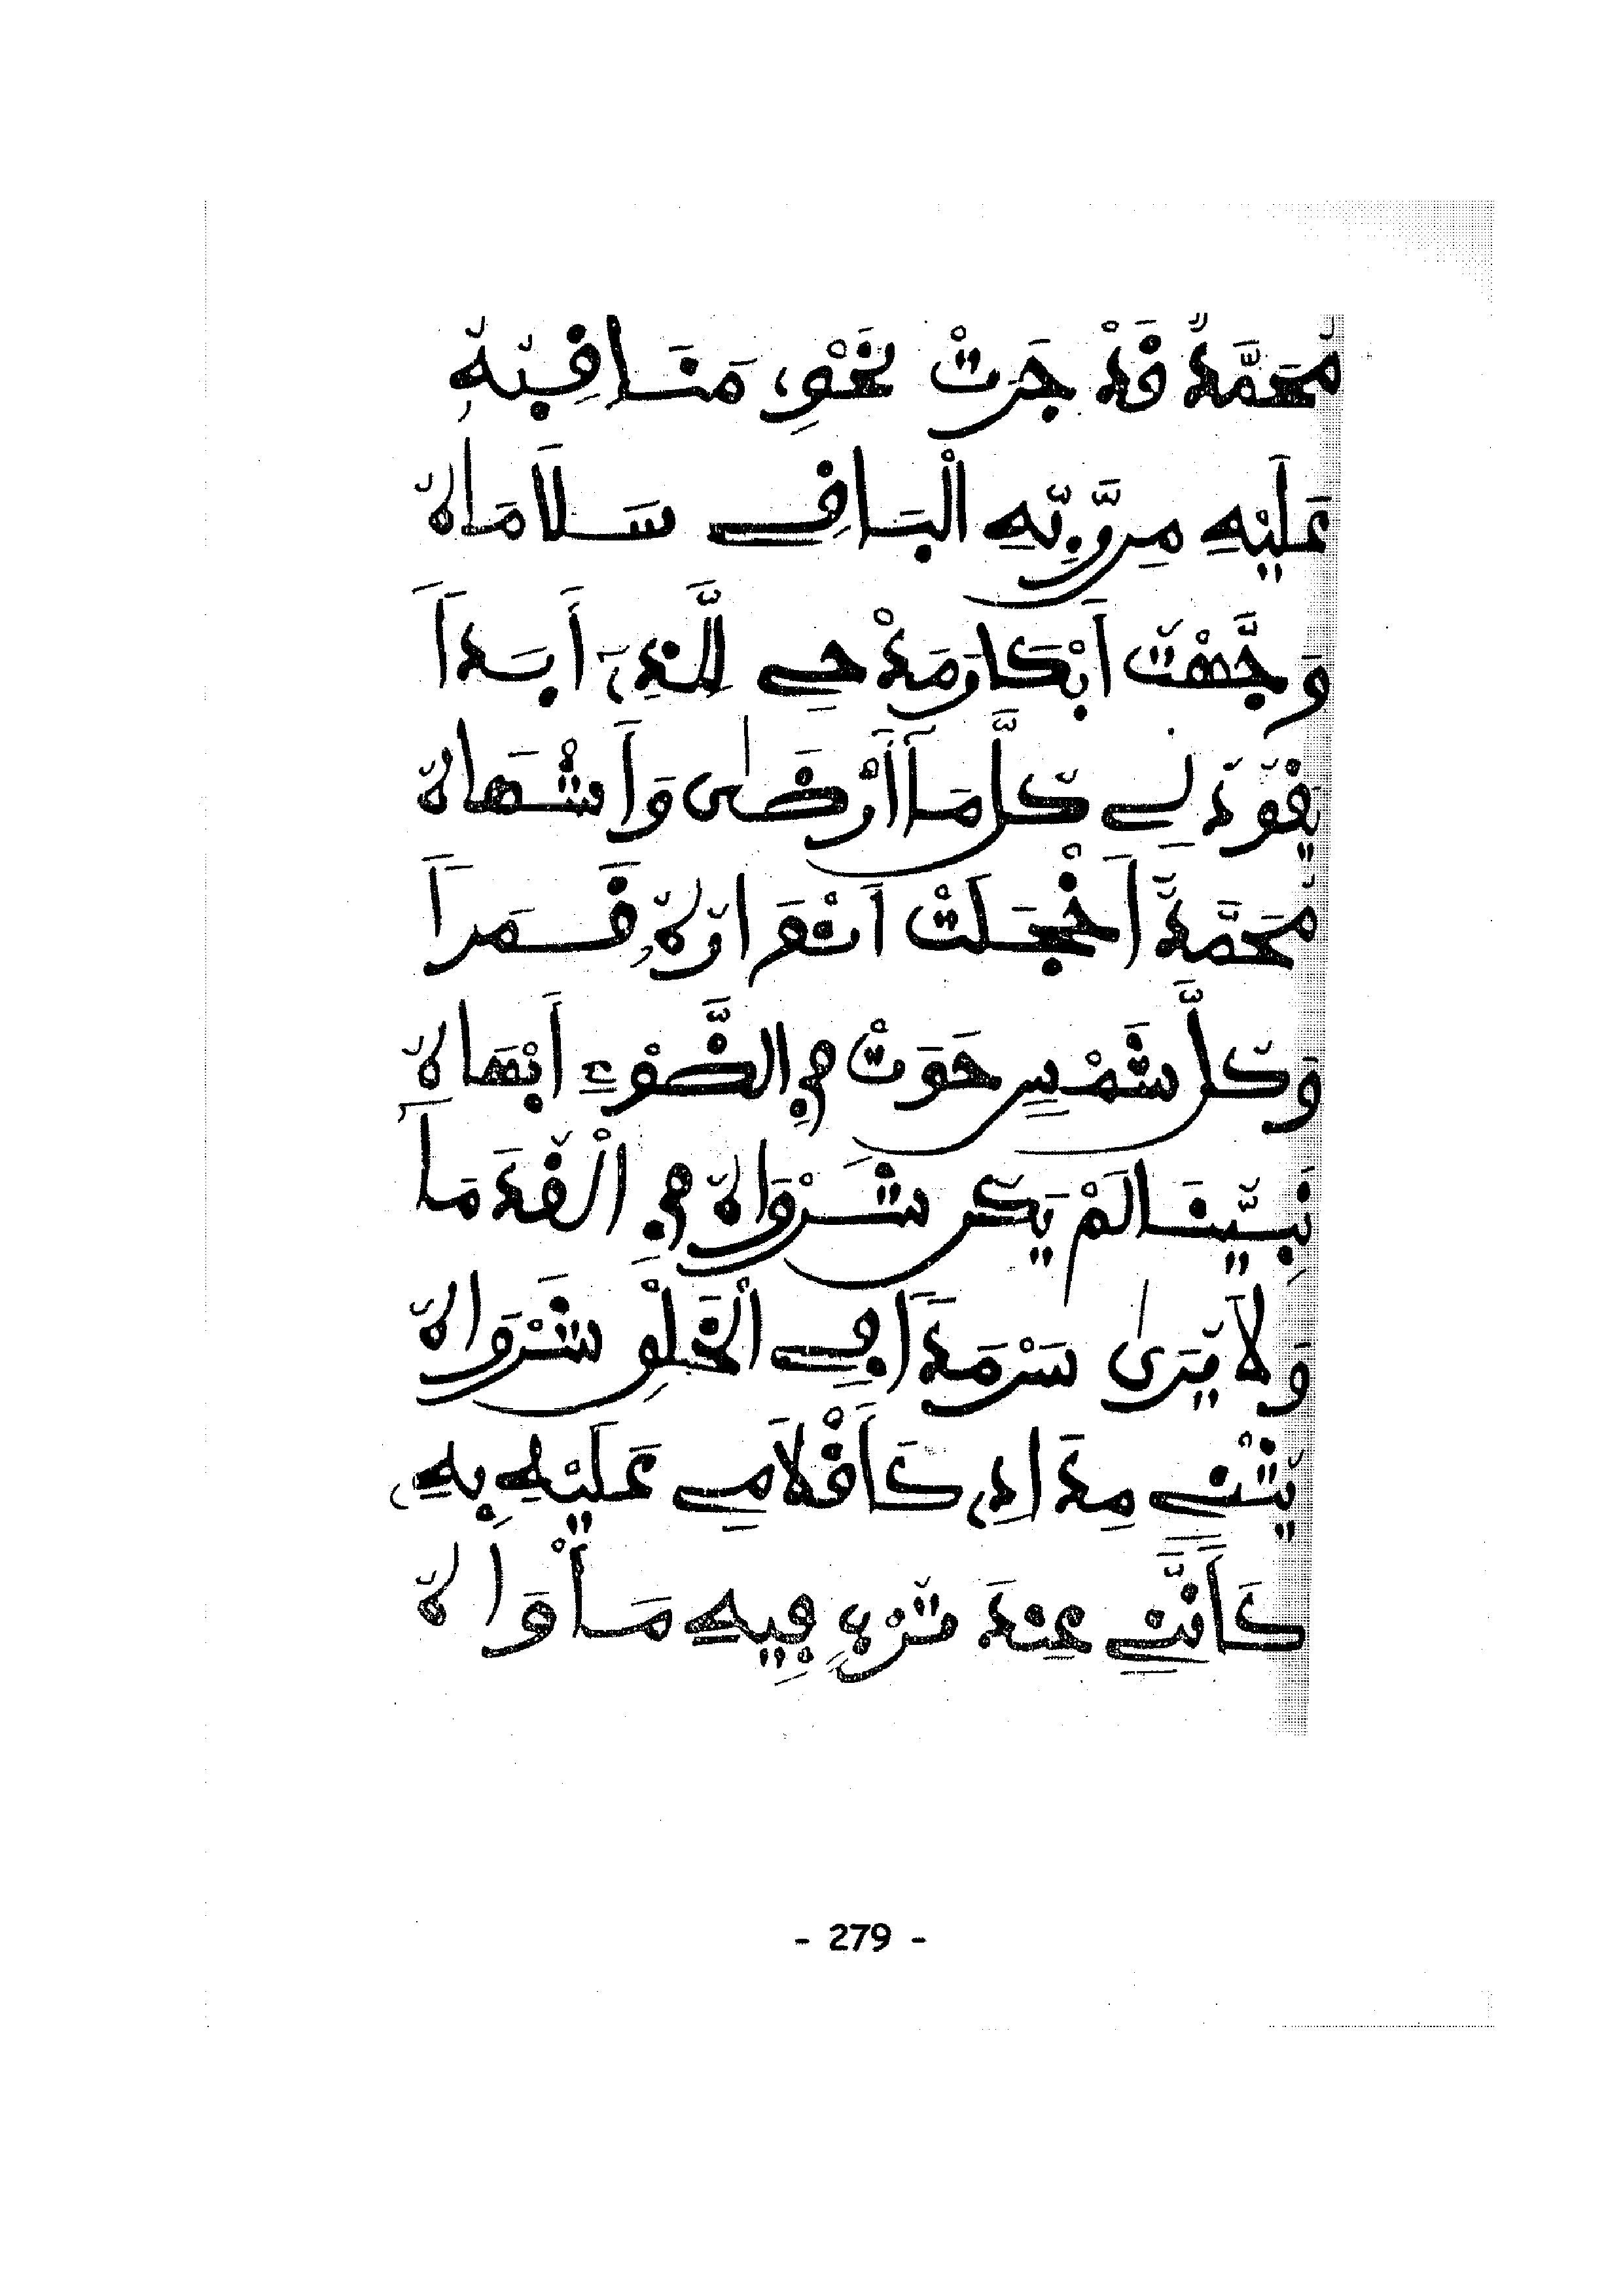 مُحَمَّدٌ قَدْ جَرَتْ نَحْوِي مَنَاقِبُهُ
عَلَيْهِ مِن رَّبِّهِ الْبَاقِي سَلَامَاهُ
وَجَّهْتُ أَبْكَارَ مَدْحِي لِلَّذِي أَبَدًا
يَقُودُ لِي كُلَّ مَا أَرْضَى وَأَشْهَاهُ
مُحَمَّدٌ أَخْجَلَتْ أَنْوَارُهُ قَمَرًا
وَكُلَّ شَمْسٍ حَوَتْ فِي الضَّوْءِ أَبْهَاهُ
نَبِيُّنَا لَمْ يَكُن شَرْوَاهُ فِي الْقُدَمَا
وَلَا يُرَى سَرْمَدًا فِي الْخَلْقِ شَرْوَاهُ
يُثْنِي مِدَادِي كَأَقْلَامِي عَلَيْهِ بِهِ
كَأَنَّنِي عِنْدَ تُرْبٍ فِيهِ مَأْوَاهُ
- 279 -